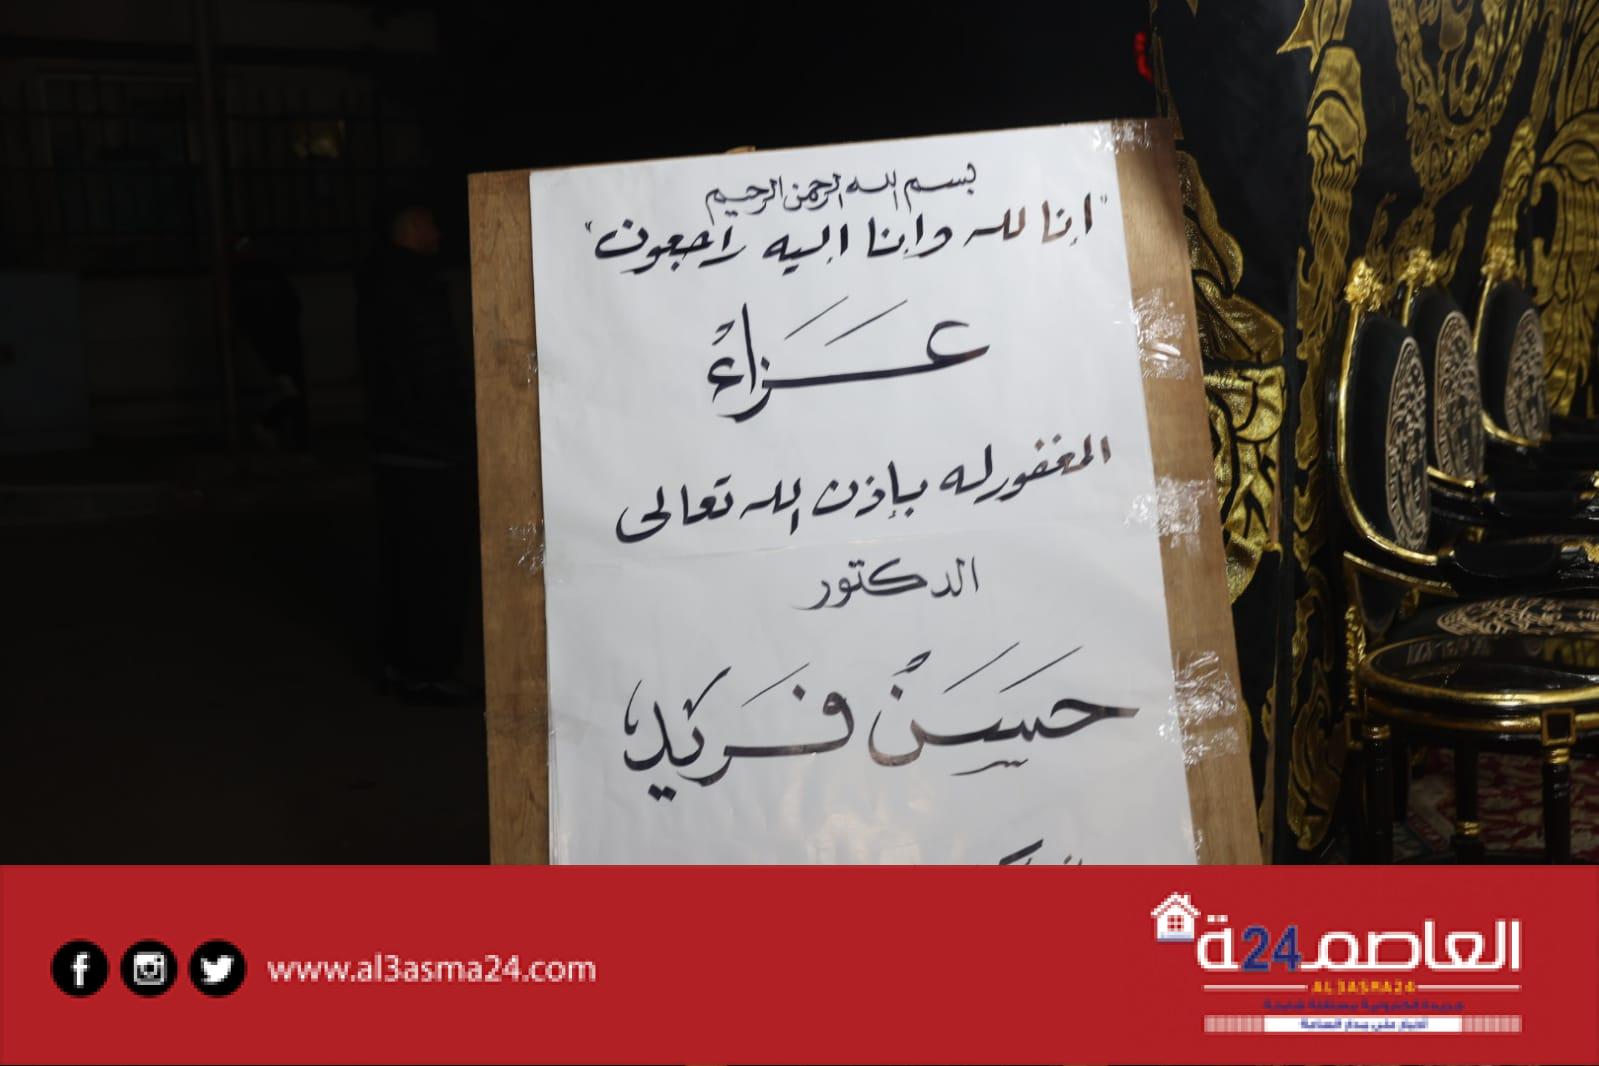 بسم الله الرحمن الرحيم
"إنا لله وإنا إليه راجعون"
عَـزَاءْ
المغفور له بإذن الله تعالى
الدكتور
حَسَنْ فَريْد
www.al3asma24.com
العاصمـ24ـة
AL3ASMA24